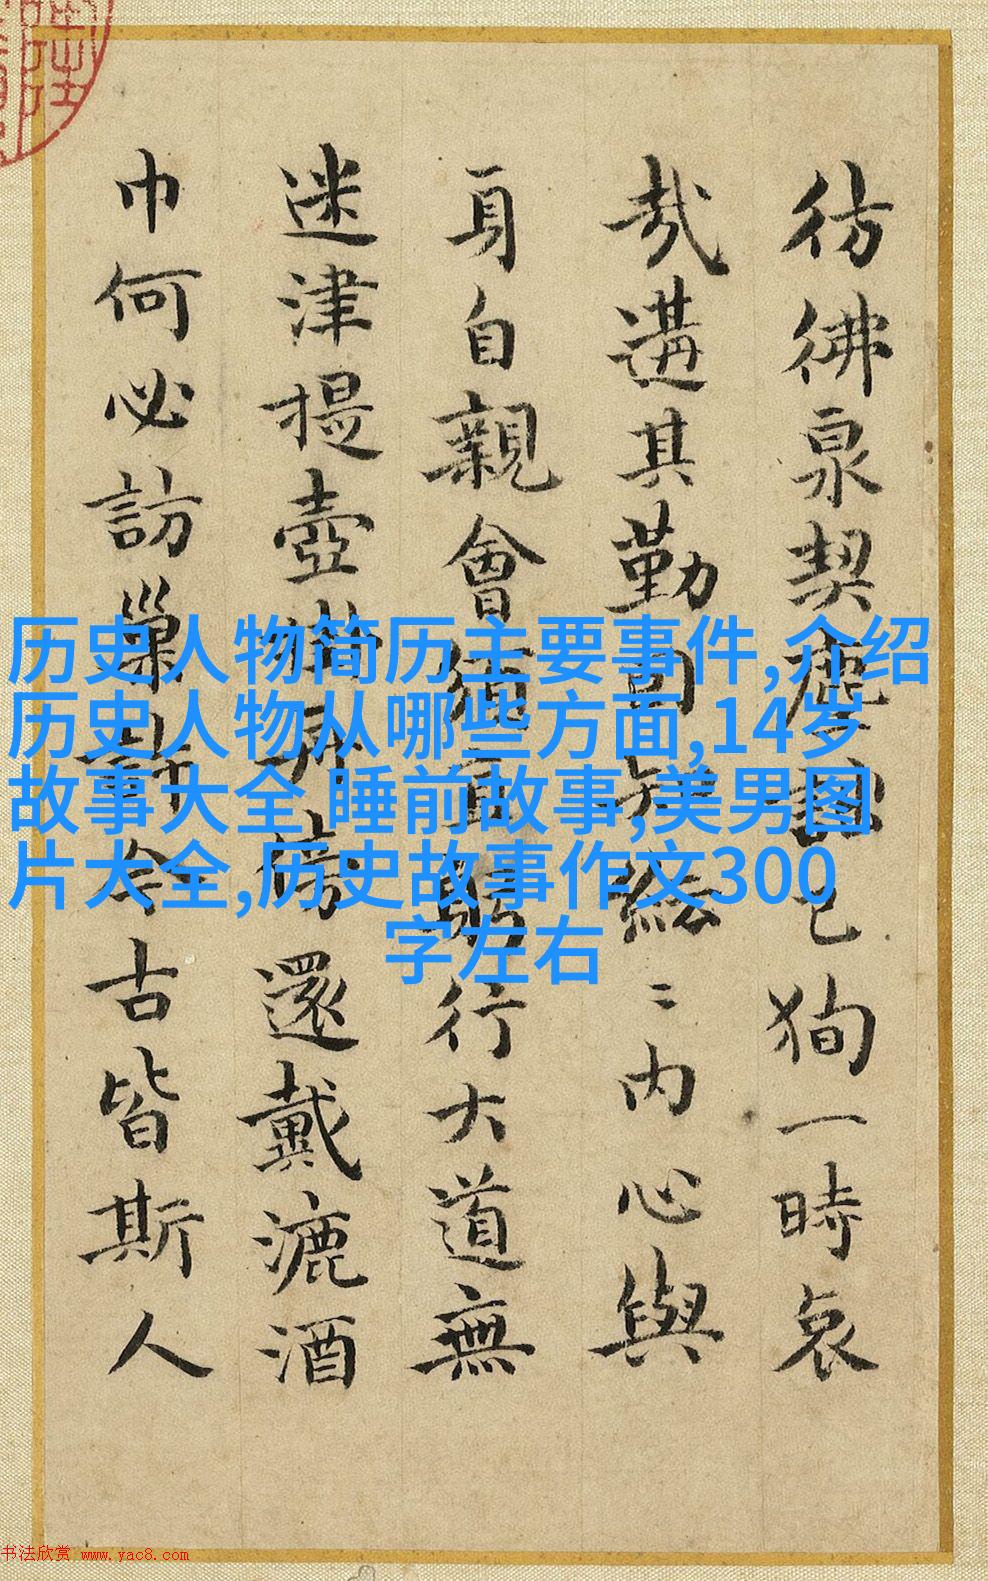 历史人物简历主要事件,介绍
历史人物从哪些方面,14岁
故事大全 睡前故事,美男图
片大全,历史故事作文300
字左右
彷彿泉契鹿
已狥一時哀
哉遘其勤
絵〻内心與
身自親會
行大道無
迷津提壺
還戴漉酒
巾何必訪巢
今古皆斯人
书法欣赏 www.yac8.com